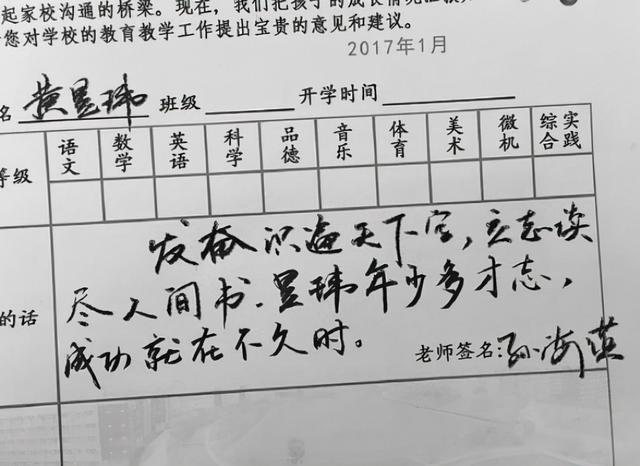 起家校沟通的桥梁。现在，我们把孩子的成长情况汇报
您对学校的教育教学工作提出宝贵的意见和建议。
2017年1月
名 黄昱玮 班级 开学时间
等级 语文 数学 英语 科学 品德 音乐 体育 美术 微机 综合实践
发奋识遍天下字，立志读
尽人间书.昱玮年少多才志，
的话
成功就在不久时。
老师签名:孙海英